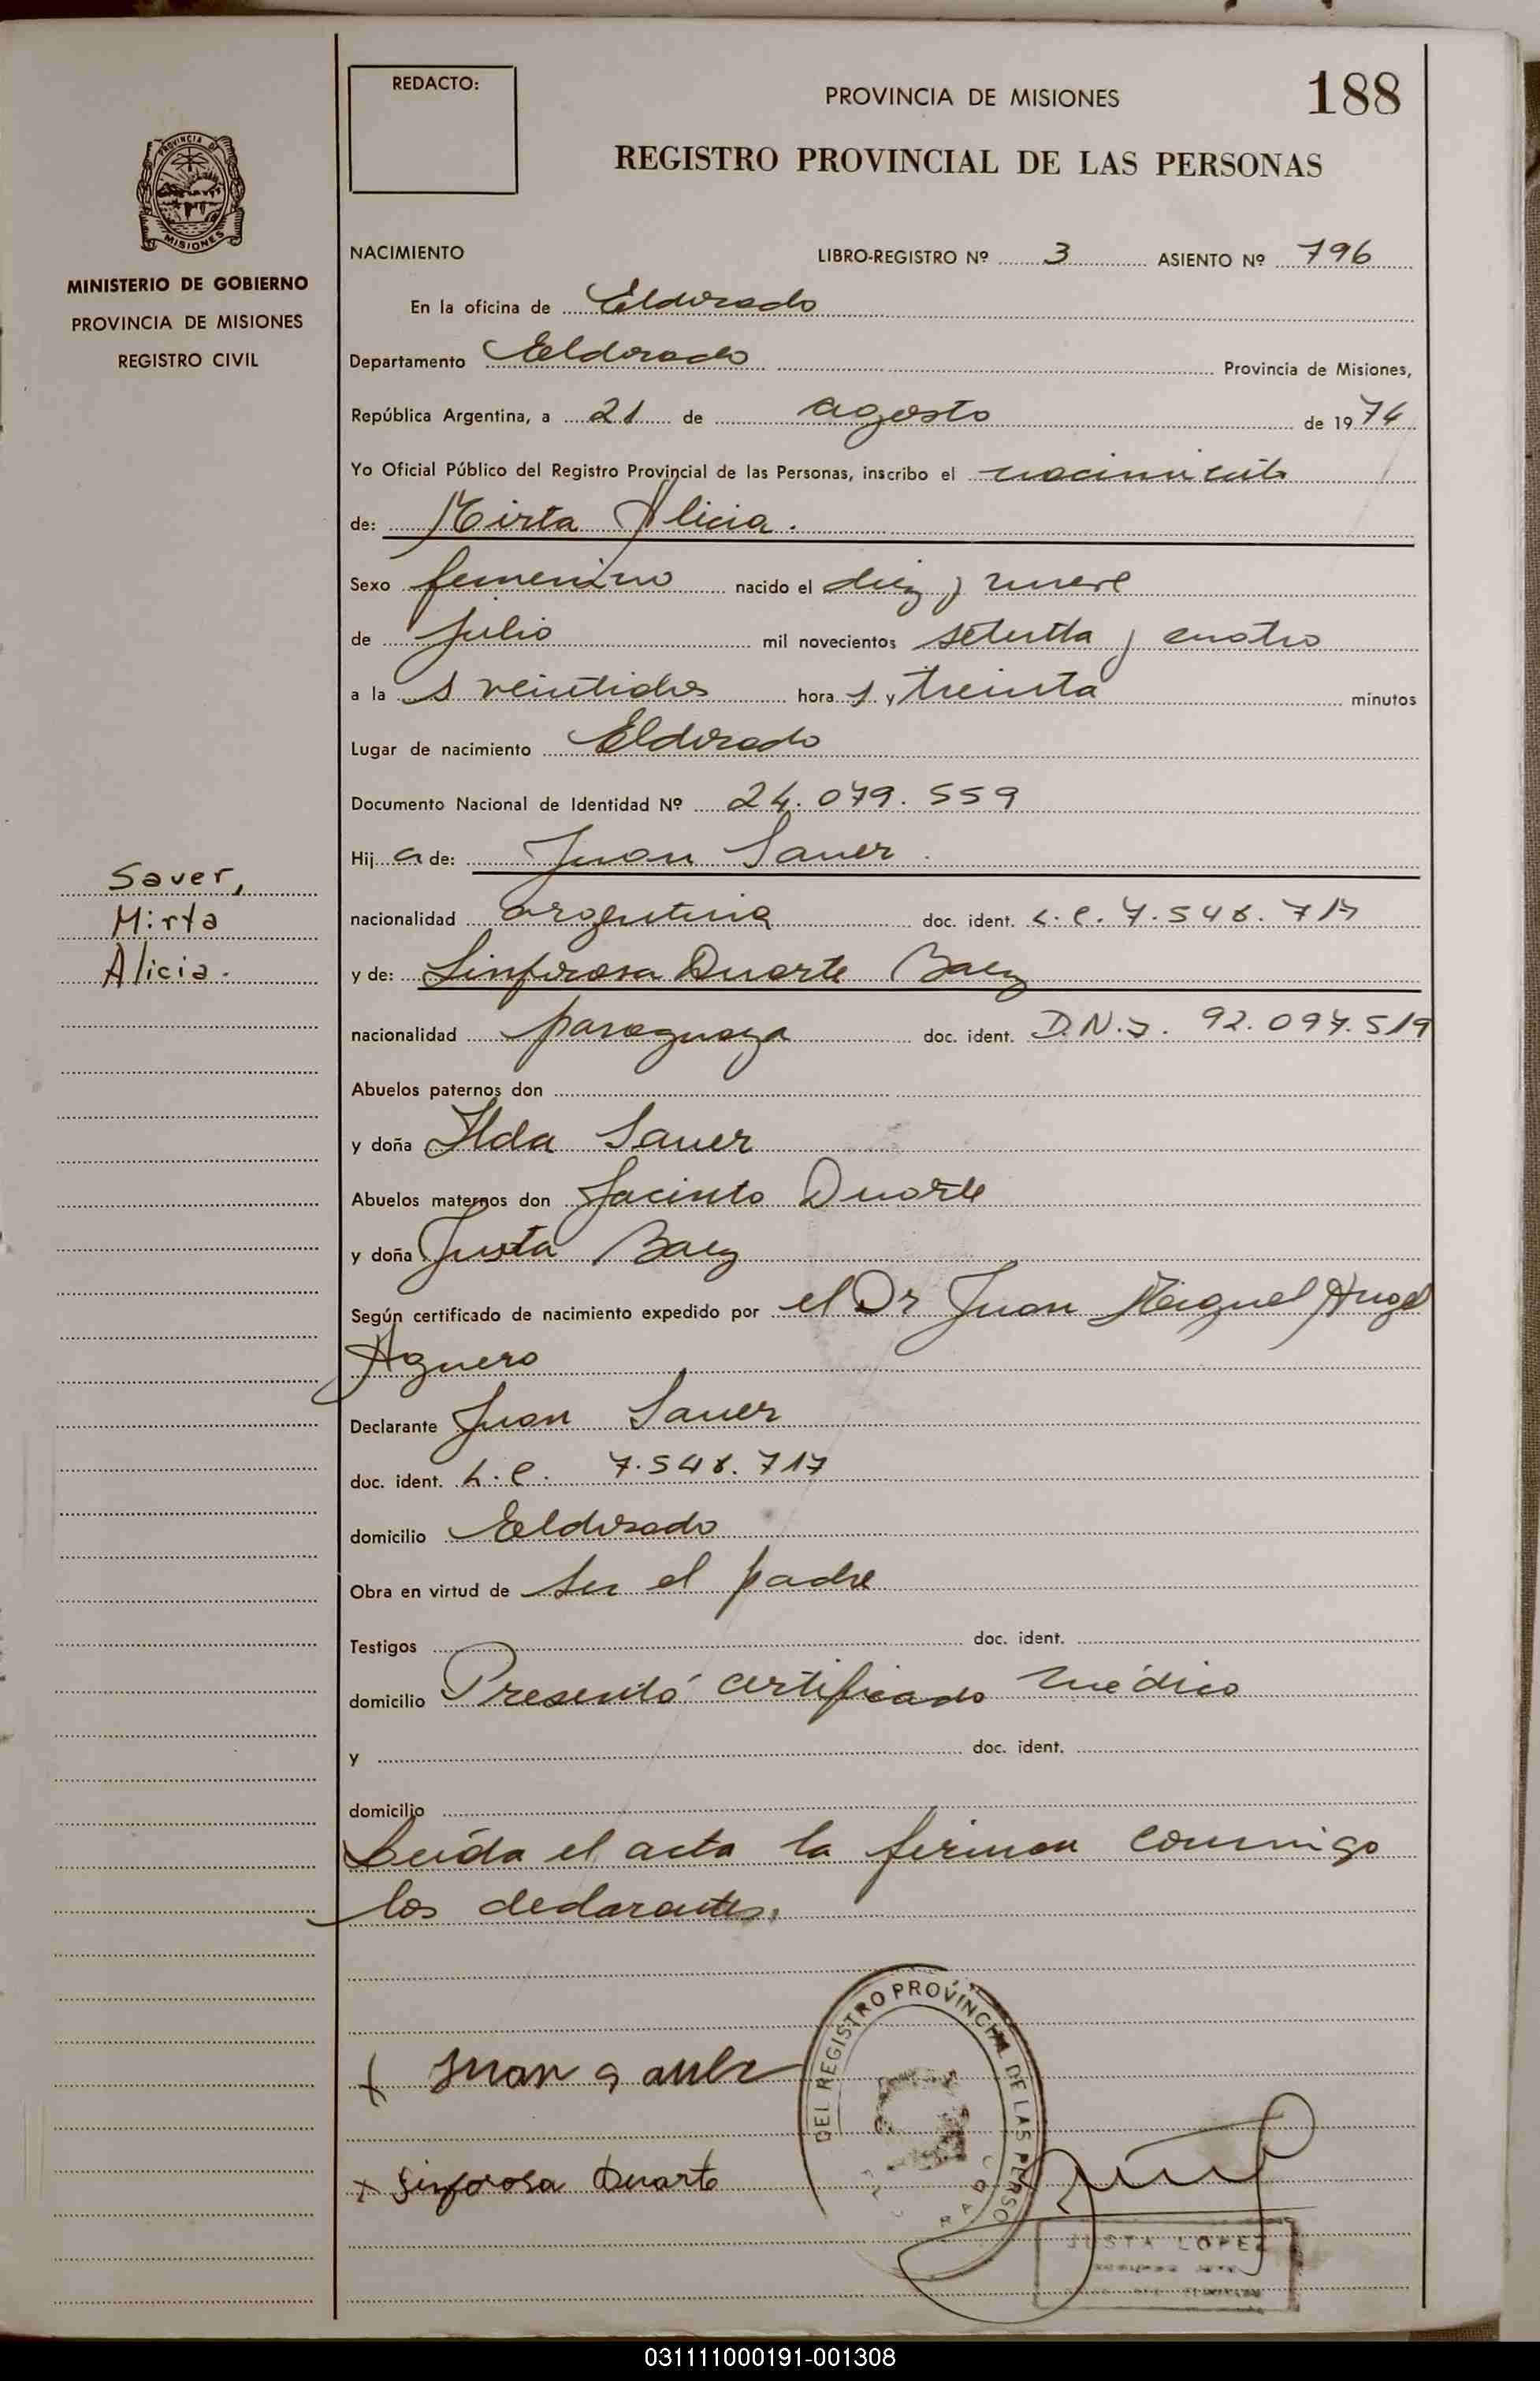 REDACTO:
PROVINCIA DE MISIONES
188
REGISTRO PROVINCIAL DE LAS PERSONAS
PROVINCIA DE
MISIONES
MINISTERIO DE GOBIERNO
PROVINCIA DE MISIONES
REGISTRO CIVIL
NACIMIENTO LIBRO-REGISTRO Nº 3 ASIENTO Nº 796
En la oficina de Eldorado
Departamento Eldorado Provincia de Misiones,
República Argentina, a 21 de agosto de 1974
Yo Oficial Público del Registro Provincial de las Personas, inscribo el nacimiento
de: Mirta Alicia.
Sexo femenino nacido el diez y nueve
de julio mil novecientos setenta y cuatro
a la s veintidos hora s y treinta minutos
Lugar de nacimiento Eldorado
Documento Nacional de Identidad Nº 24.079.559
Hij a de: Juan Sauer.
Saver,
Mirta
Alicia.
nacionalidad argentina doc. ident. L.E. 7.548.717
y de: Sinforosa Duarte Baez
nacionalidad paraguaya doc. ident. D.N.I. 92.097.519
Abuelos paternos don
y doña Ilda Sauer
Abuelos maternos don Jacinto Duarte
y doña Justa Baez
Según certificado de nacimiento expedido por el Dr Juan Miguel Angel
Aguero
Declarante Juan Sauer
doc. ident. L.E. 7.548.717
domicilio Eldorado
Obra en virtud de ser el padre
Testigos doc. ident.
domicilio Presentó certificado médico
y doc. ident.
domicilio
Leída el acta la firman conmigo
los declarantes.
Juan Sauer
Sinforosa Duarte
DEL REGISTRO PROVINCIAL DE LAS PERSO
JUSTA LOPEZ
031111000191-001308